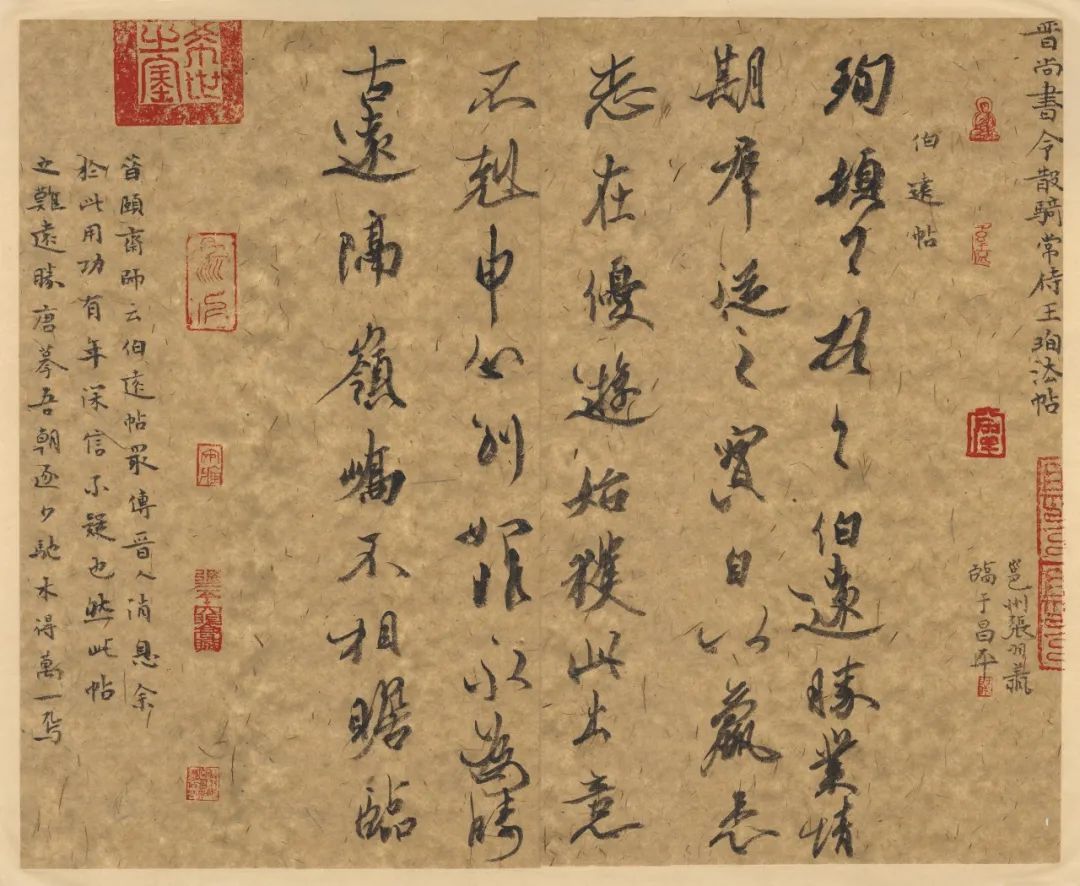 晋尚書令散騎常侍王珣法帖
邕州張羽
臨于昌平
伯遠帖
珣頓〻首〻伯遠勝業情
期群從之寶自以羸患
志在優遊始獲此出意
不剋申分別如昨永為疇
古遠隔嶺嶠不相瞻臨
希世之寶
昔頤齋師云伯遠帖最傳晉人消息余
於此用功有年深信不疑也然此帖
之難遠勝唐摹吾朝逐夕馳未得萬一焉